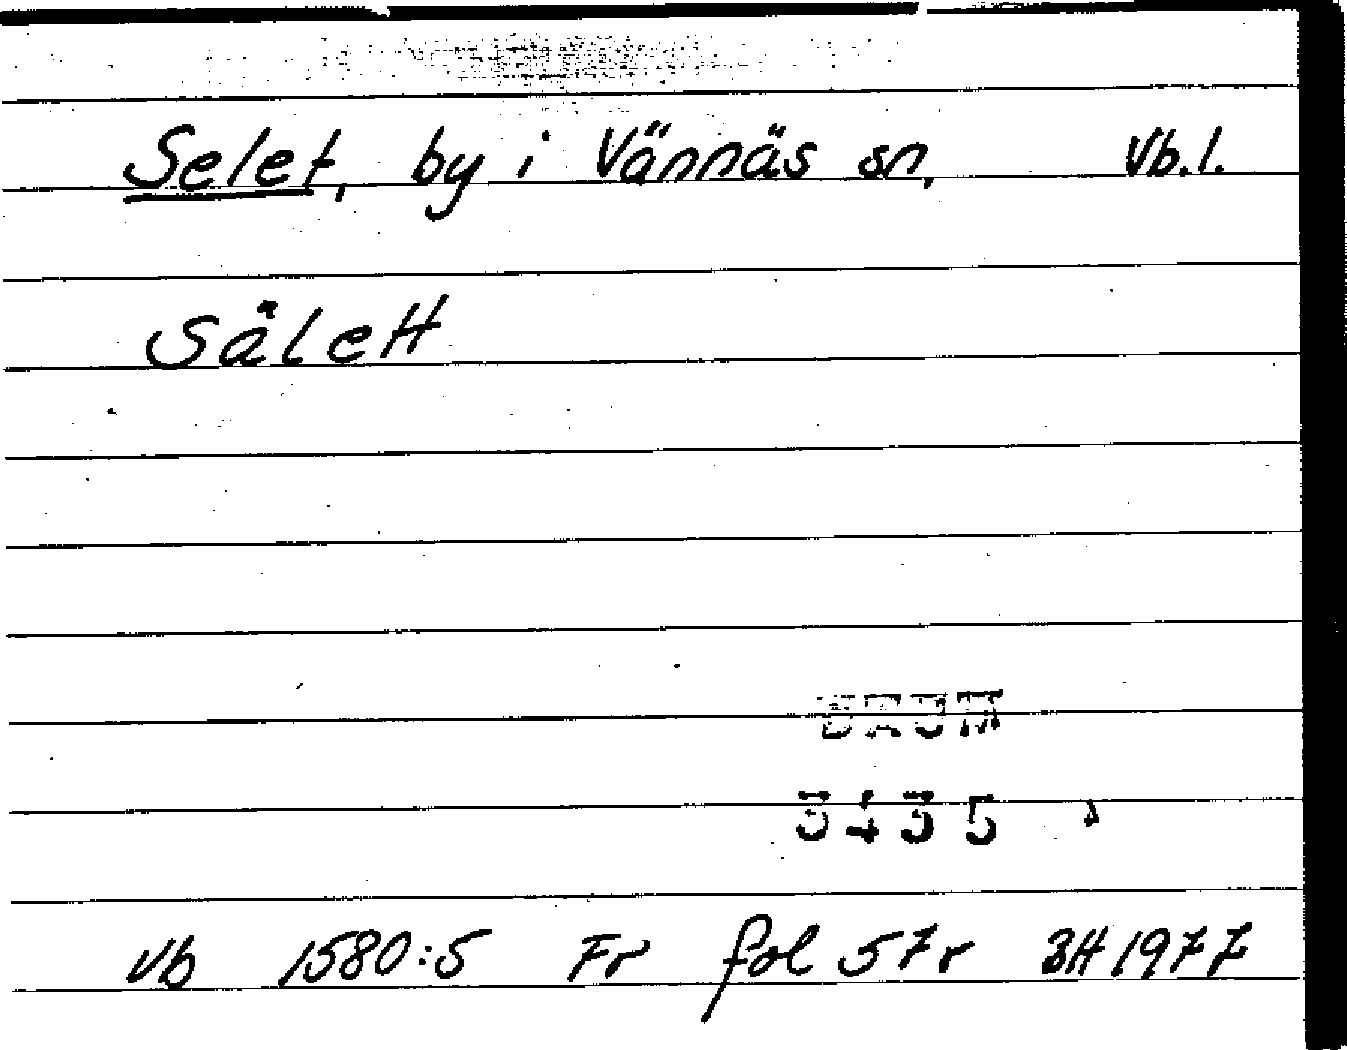 Selet, by i Vännäs sn, Vb.l.
Sälett
Vb 1580:5 Fr fol 57r BH 1977